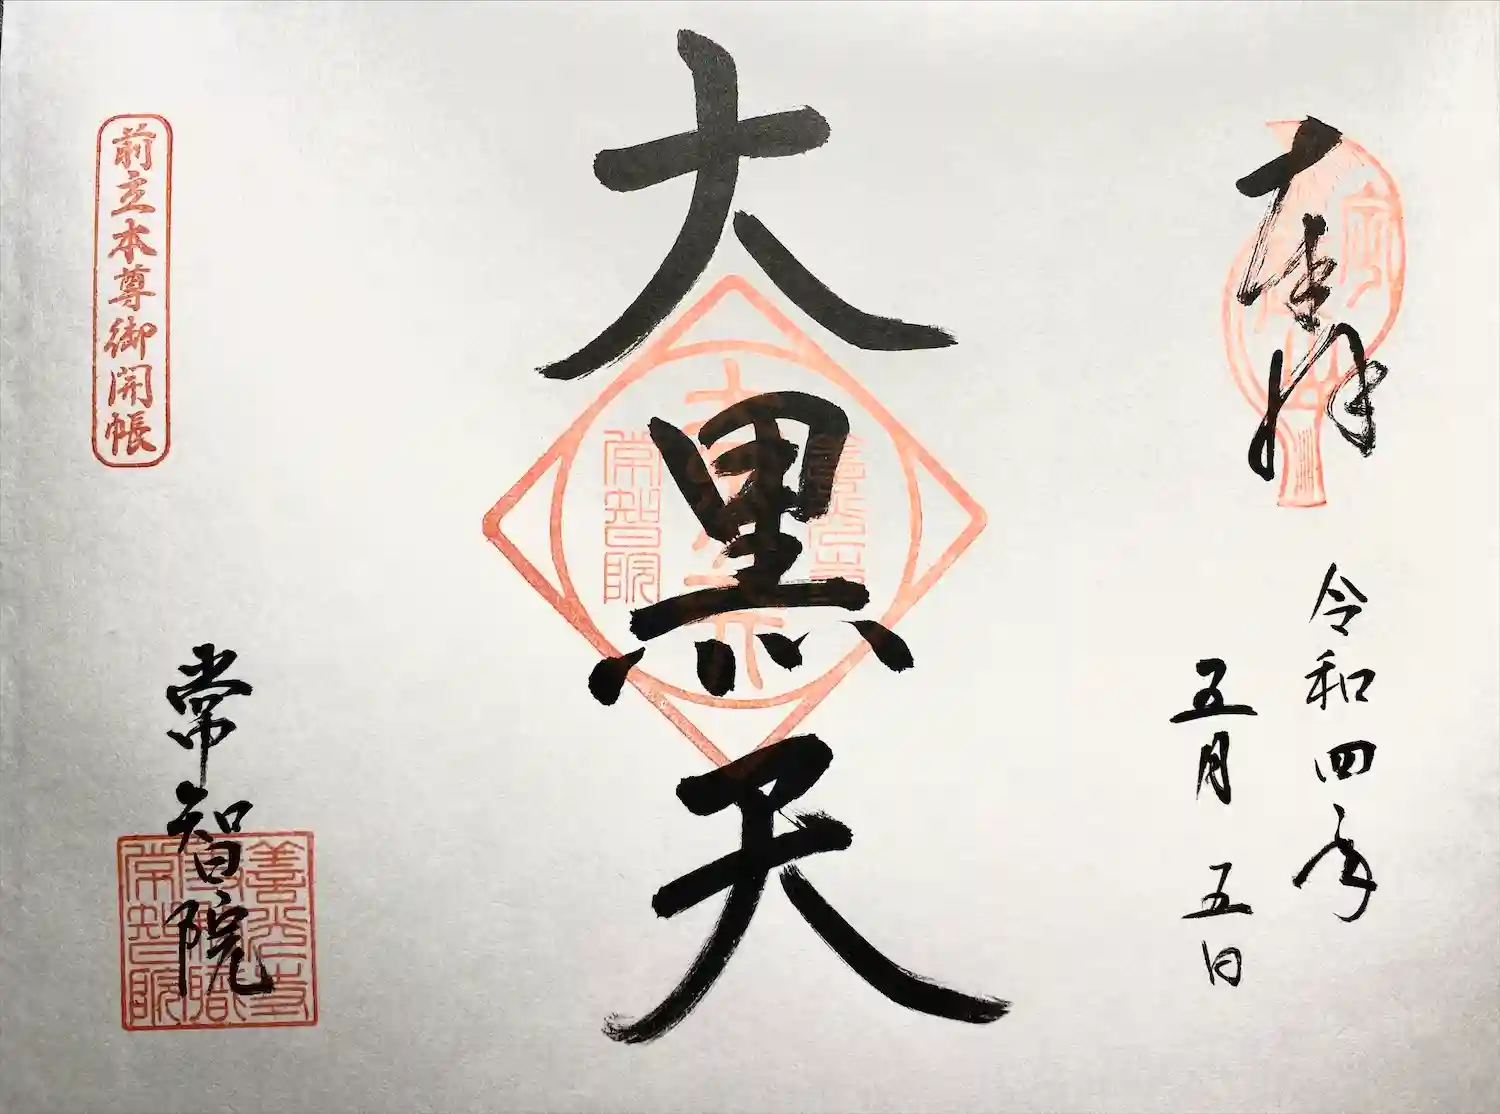 奉拝
令和四年
五月五日
大黒天
善光寺
常智院
前立本尊御開帳
常智院
善光寺
常智院